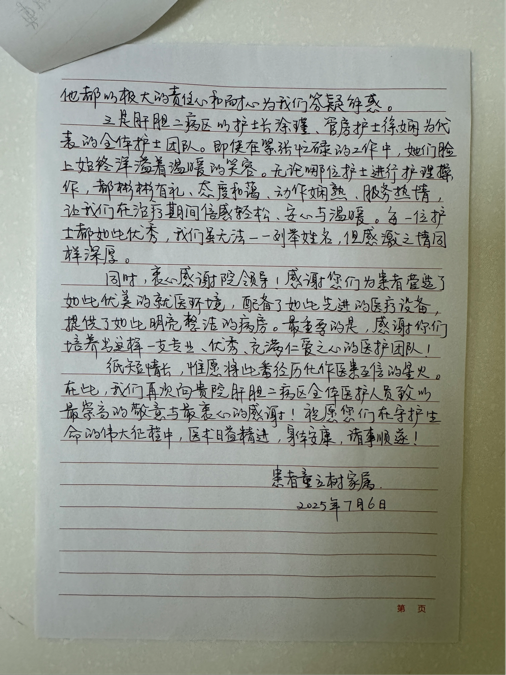 他都以极大的责任心和耐心为我们答疑解惑。
又是肝胆二病区以护士长涂瑾、管房护士徐娴为代
表的全体护士团队。即使在紧张忙碌的工作中，她们脸
上始终洋溢着温暖的笑容。无论哪位护士进行护理操
作，都彬彬有礼、态度和蔼、动作娴熟、服务热情，
让我们在治疗期间倍感轻松、安心与温暖。每一位护
士都如此优秀，我们虽无法一一列举姓名，但感激之情同
样深厚。
同时，衷心感谢院领导！感谢您们为患者营造了
如此优美的就医环境，配备了如此先进的医疗设备，
提供了如此明亮整洁的病房。最重要的是，感谢你们
培养出这样一支专业、优秀、充满仁爱之心的医护团队！
纸短情长，惟愿将此番经历化作医患互信的星火。
在此，我们再次向贵院肝胆二病区全体医护人员致以
最崇高的敬意与最衷心的感谢！祝愿您们在守护生
命的伟大征程中，医术日益精进，身体安康，诸事顺遂！
患者童立树家属
2025年7月6日
第 页